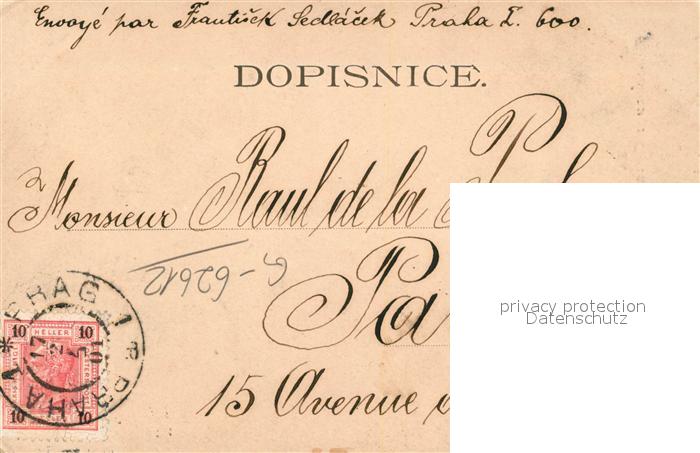 Envoyé par František Sedláček Praha I. 600.
DOPISNICE.
Monsieur Raul de la
Pa
G-62612
privacy protection
Datenschutz
PRAG 1
PRAHA 1
17 2 5
10 HELLER 10
10 10
15 Avenue